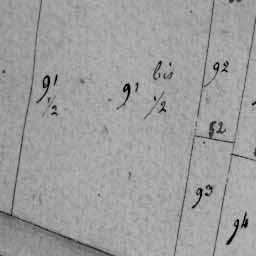 91 1/2
91 bis 1/2
92
82
93
94